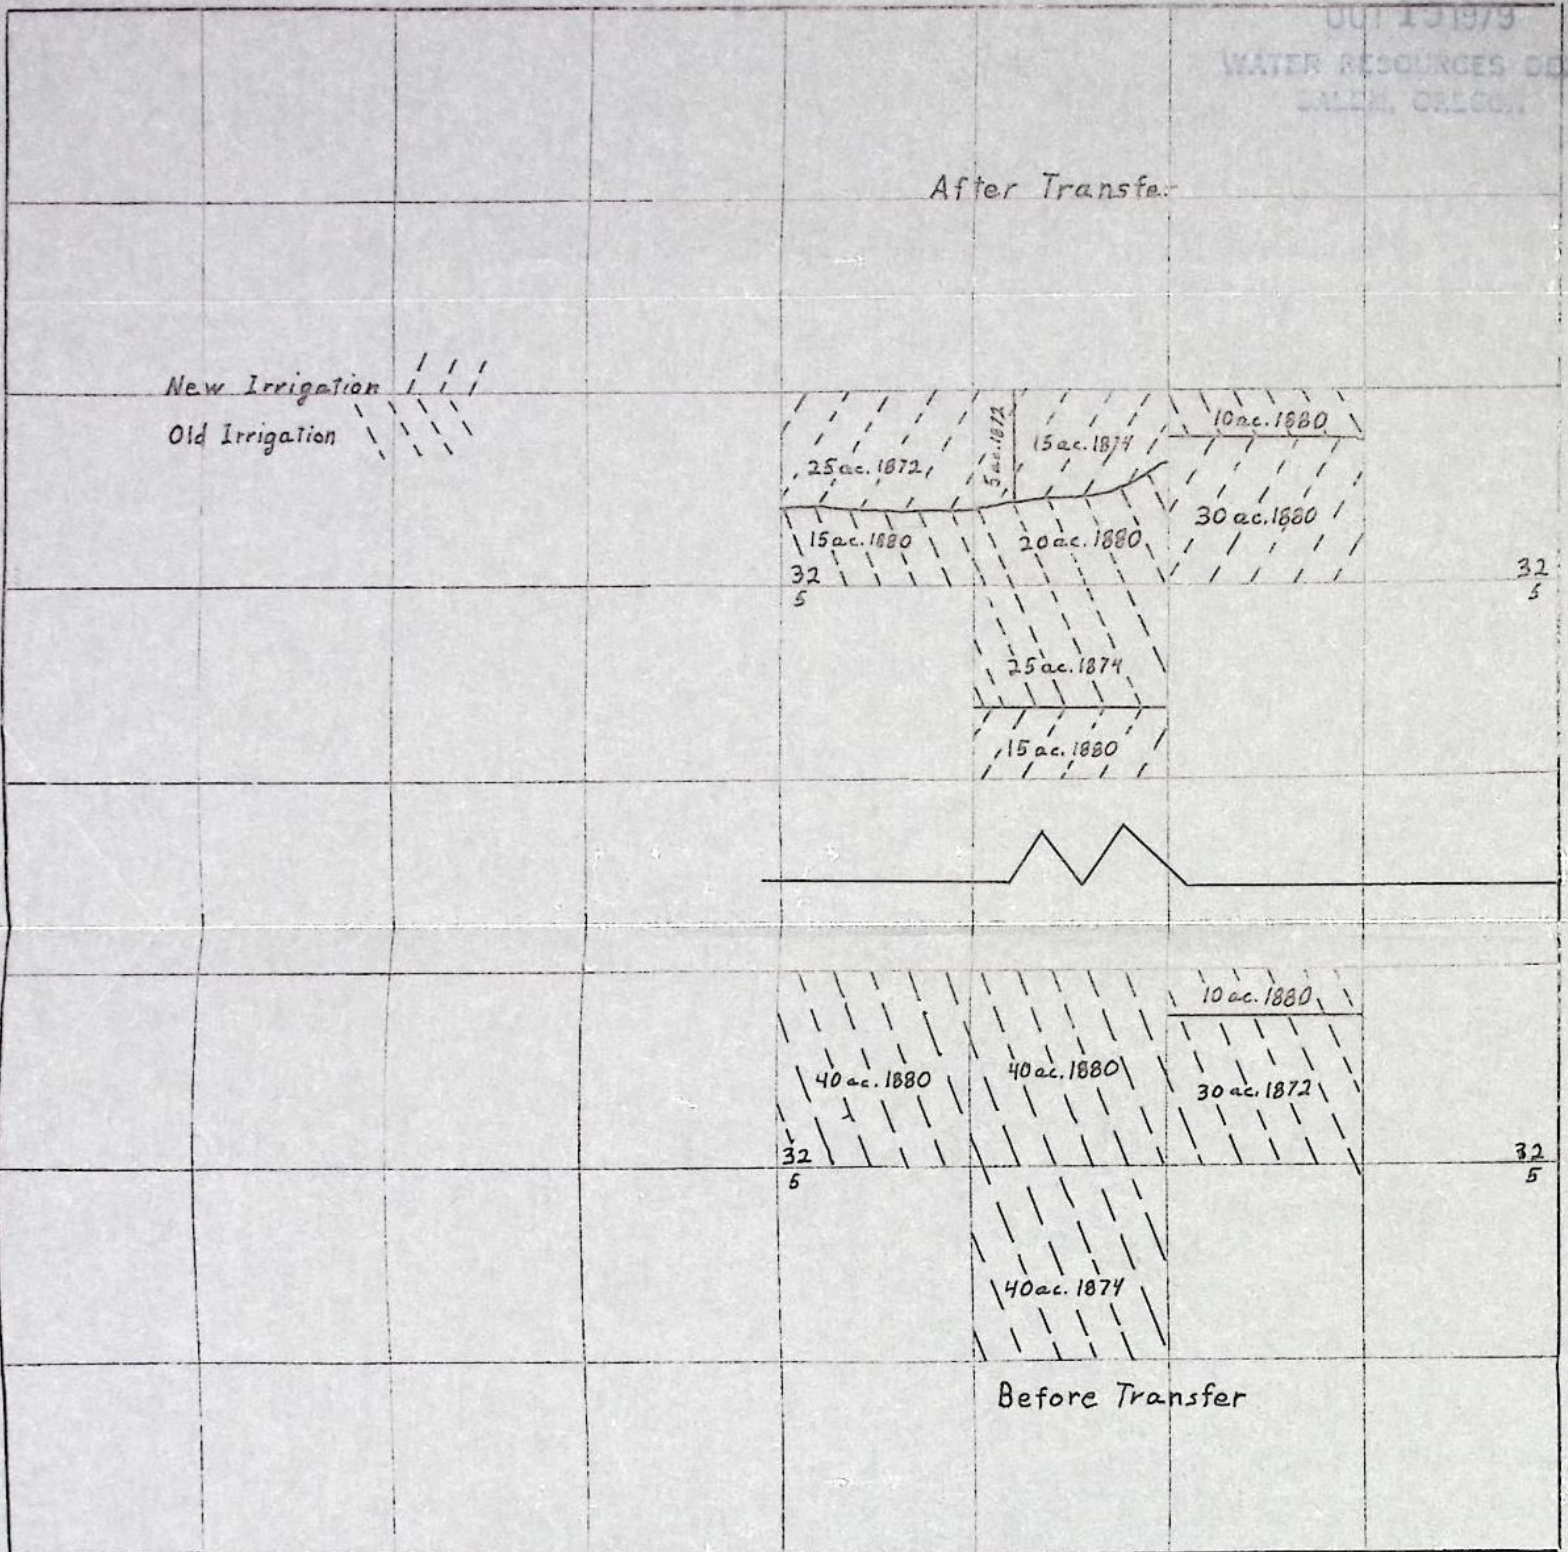 WATER RESOURCES
SALEM, OREGON
After Transfer
New Irrigation
Old Irrigation
10 ac. 1880
5 ac. 1872
15 ac. 1874
25 ac. 1872
30 ac. 1880
15 ac. 1880
20 ac. 1880
32
5
32
5
25 ac. 1874
15 ac. 1880
10 ac. 1880
40 ac. 1880
40 ac. 1880
30 ac. 1872
32
5
32
5
40 ac. 1874
Before Transfer